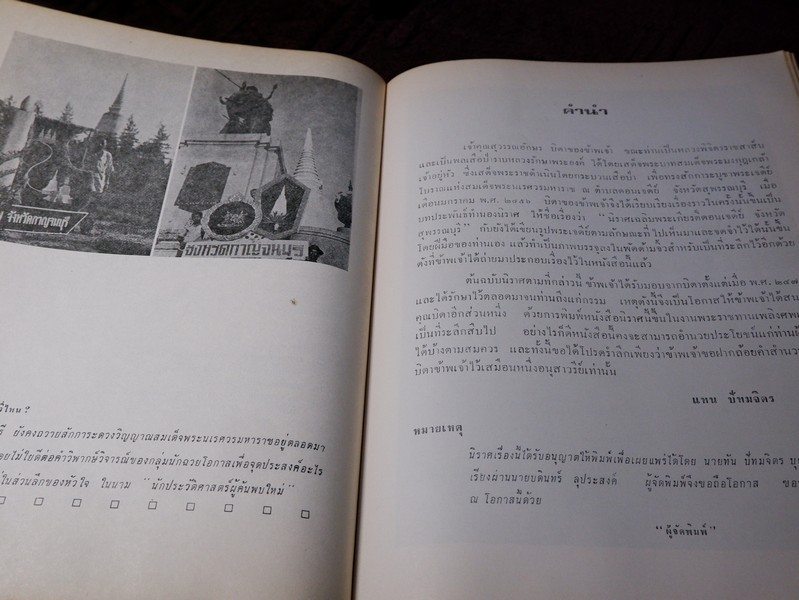 จังหวัดกาญจนบุรี
จังหวัดกาญจนบุรี
รี่ไหน?
รี ยังคงถวายสักการะดวงวิญญาณสมเด็จพระนเรศวรมหาราชอยู่ตลอดมา
ดยไม่ใยดีต่อคำวิพากษ์วิจารณ์ของกลุ่มนักฉวยโอกาสเพื่อจุดประสงค์อะไร
ในส่วนลึกของหัวใจ ในนาม "นักประวัติศาสตร์ผู้ค้นพบใหม่"
คำนำ
เจ้าคุณสุวรรณอักษร บิดาของข้าพเจ้า ขณะท่านเป็นหลวงพิจิตราชสาส์น
และเป็นคนเสือป่าราบหลวงรักษาพระองค์ ได้โดยเสด็จพระบาทสมเด็จพระมงกุฎเกล้า
เจ้าอยู่หัว ซึ่งเสด็จพระราชดำเนินโดยกระบวนเสือป่า เพื่อทรงสักการะบูชาพระเจดีย์
โบราณแห่งสมเด็จพระนเรศวรมหาราช ณ ตำบลดอนเจดีย์ จังหวัดสุพรรณบุรี เมื่อ
เดือนมกราคม พ.ศ. ๒๔๕๖ บิดาของข้าพเจ้าจึงได้เรียบเรียงเรื่องราวในครั้งนั้นขึ้นเป็น
บทประพันธ์ทำนองนิราศ ให้ชื่อเรื่องว่า "นิราศเถลิมพระเกียรติดอนเจดีย์ จังหวัด
สุพรรณบุรี" กับยังได้เขียนรูปพระเจดีย์ตามลักษณะที่ไปเห็นมาและจดจำไว้ได้นั้นขึ้น
โดยฝีมือของท่านเอง แล้วทำเป็นภาพบรรจุลงในพัดด้ามจิ้วสำหรับเป็นที่ระลึกไว้อีกด้วย
ดังที่ข้าพเจ้าได้ถ่ายมาประกอบเรื่องไว้ในหนังสือนี้แล้ว
ต้นฉบับนิราศตามที่กล่าวนี้ ข้าพเจ้าได้รับมอบจากบิดาตั้งแต่เมื่อ พ.ศ. ๒๔๗
และได้รักษาไว้ตลอดมาจนท่านถึงแก่กรรม เหตุดังนี้จึงเป็นโอกาสให้ข้าพเจ้าได้สน
คุณบิดาอีกส่วนหนึ่ง ด้วยการพิมพ์หนังสือนิราศนี้ขึ้นในงานพระราชทานเพลิงศพ
เป็นที่ระลึกสืบไป อย่างไรก็ดีหนังสือนี้คงจะสามารถอำนวยประโยชน์แก่ท่านผู้
ได้บ้างตามสมควร และทั้งนี้ขอได้โปรดรำลึกเพียงว่าข้าพเจ้าขอฝากถ้อยคำสำนว
บิดาข้าพเจ้าไว้เสมือนหนึ่งอนุสาวรีย์เท่านั้น
แทน ปัทมจิตร
หมายเหตุ
นิราศเรื่องนี้ได้รับอนุญาตให้พิมพ์เพื่อเผยแพร่ได้โดย นายทัน ปัทมจิตร บุ
เรียงผ่านนายบดินทร์ ลุประสงค์ ผู้จัดพิมพ์จึงขอถือโอกาส ขอ
ณ โอกาสนี้ด้วย
"ผู้จัดพิมพ์"